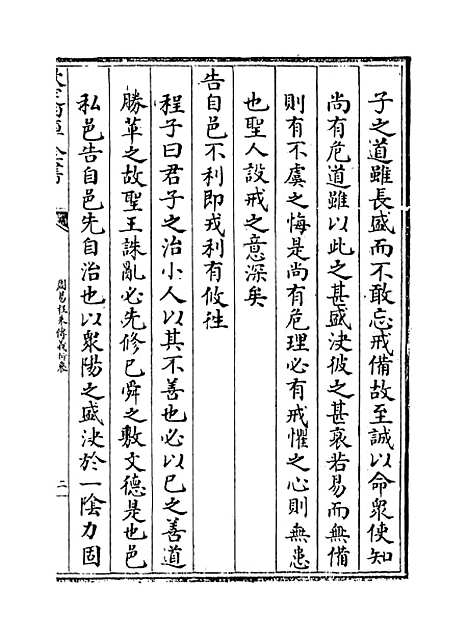 子之道雖長盛而不敢忘戒備故至誠以命衆使知
尚有危道雖以此之甚盛決彼之甚衰若易而無備
則有不虞之悔是尚有危理必有戒懼之心則無患
也聖人設戒之意深矣
告自邑不利即戎利有攸往
程子曰君子之治小人以其不善也必以已之善道
勝革之故聖王誅亂必先修已舜之敷文德是也邑
私邑告自邑先自治也以衆陽之盛決於一陰力固
周易程朱傳義折衷
二